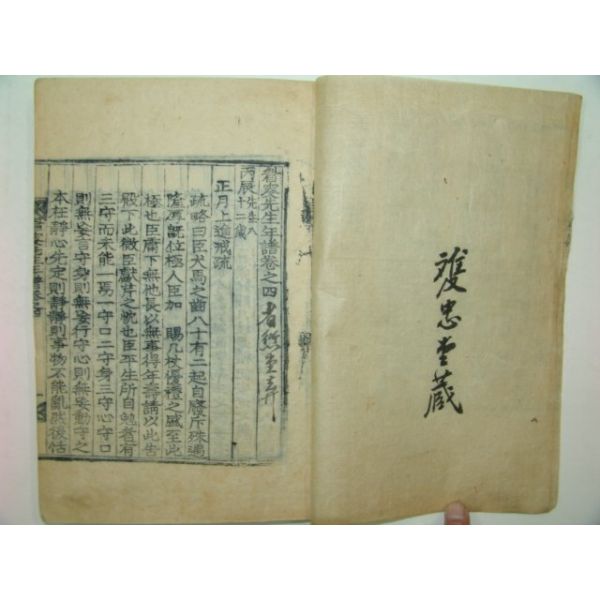 忠堂蔵
眉叟先生年譜卷之四
丙辰先生八十二歲
正月上進戒疏
疏略曰臣犬馬之齒八十有二起自廢斥殊遇
隆再既位極人臣加 賜几杖優禮之盛至此
極也臣府下無他長以無事得年壽請以此告
殿下此微臣獻芹之忱也臣平生所自勉者有
三守而未能一焉一守口二守身三守心守口
則無妄言守身則無妄行守心則無妄動守之
本在靜心先定則靜靜則事物不能亂然後恬